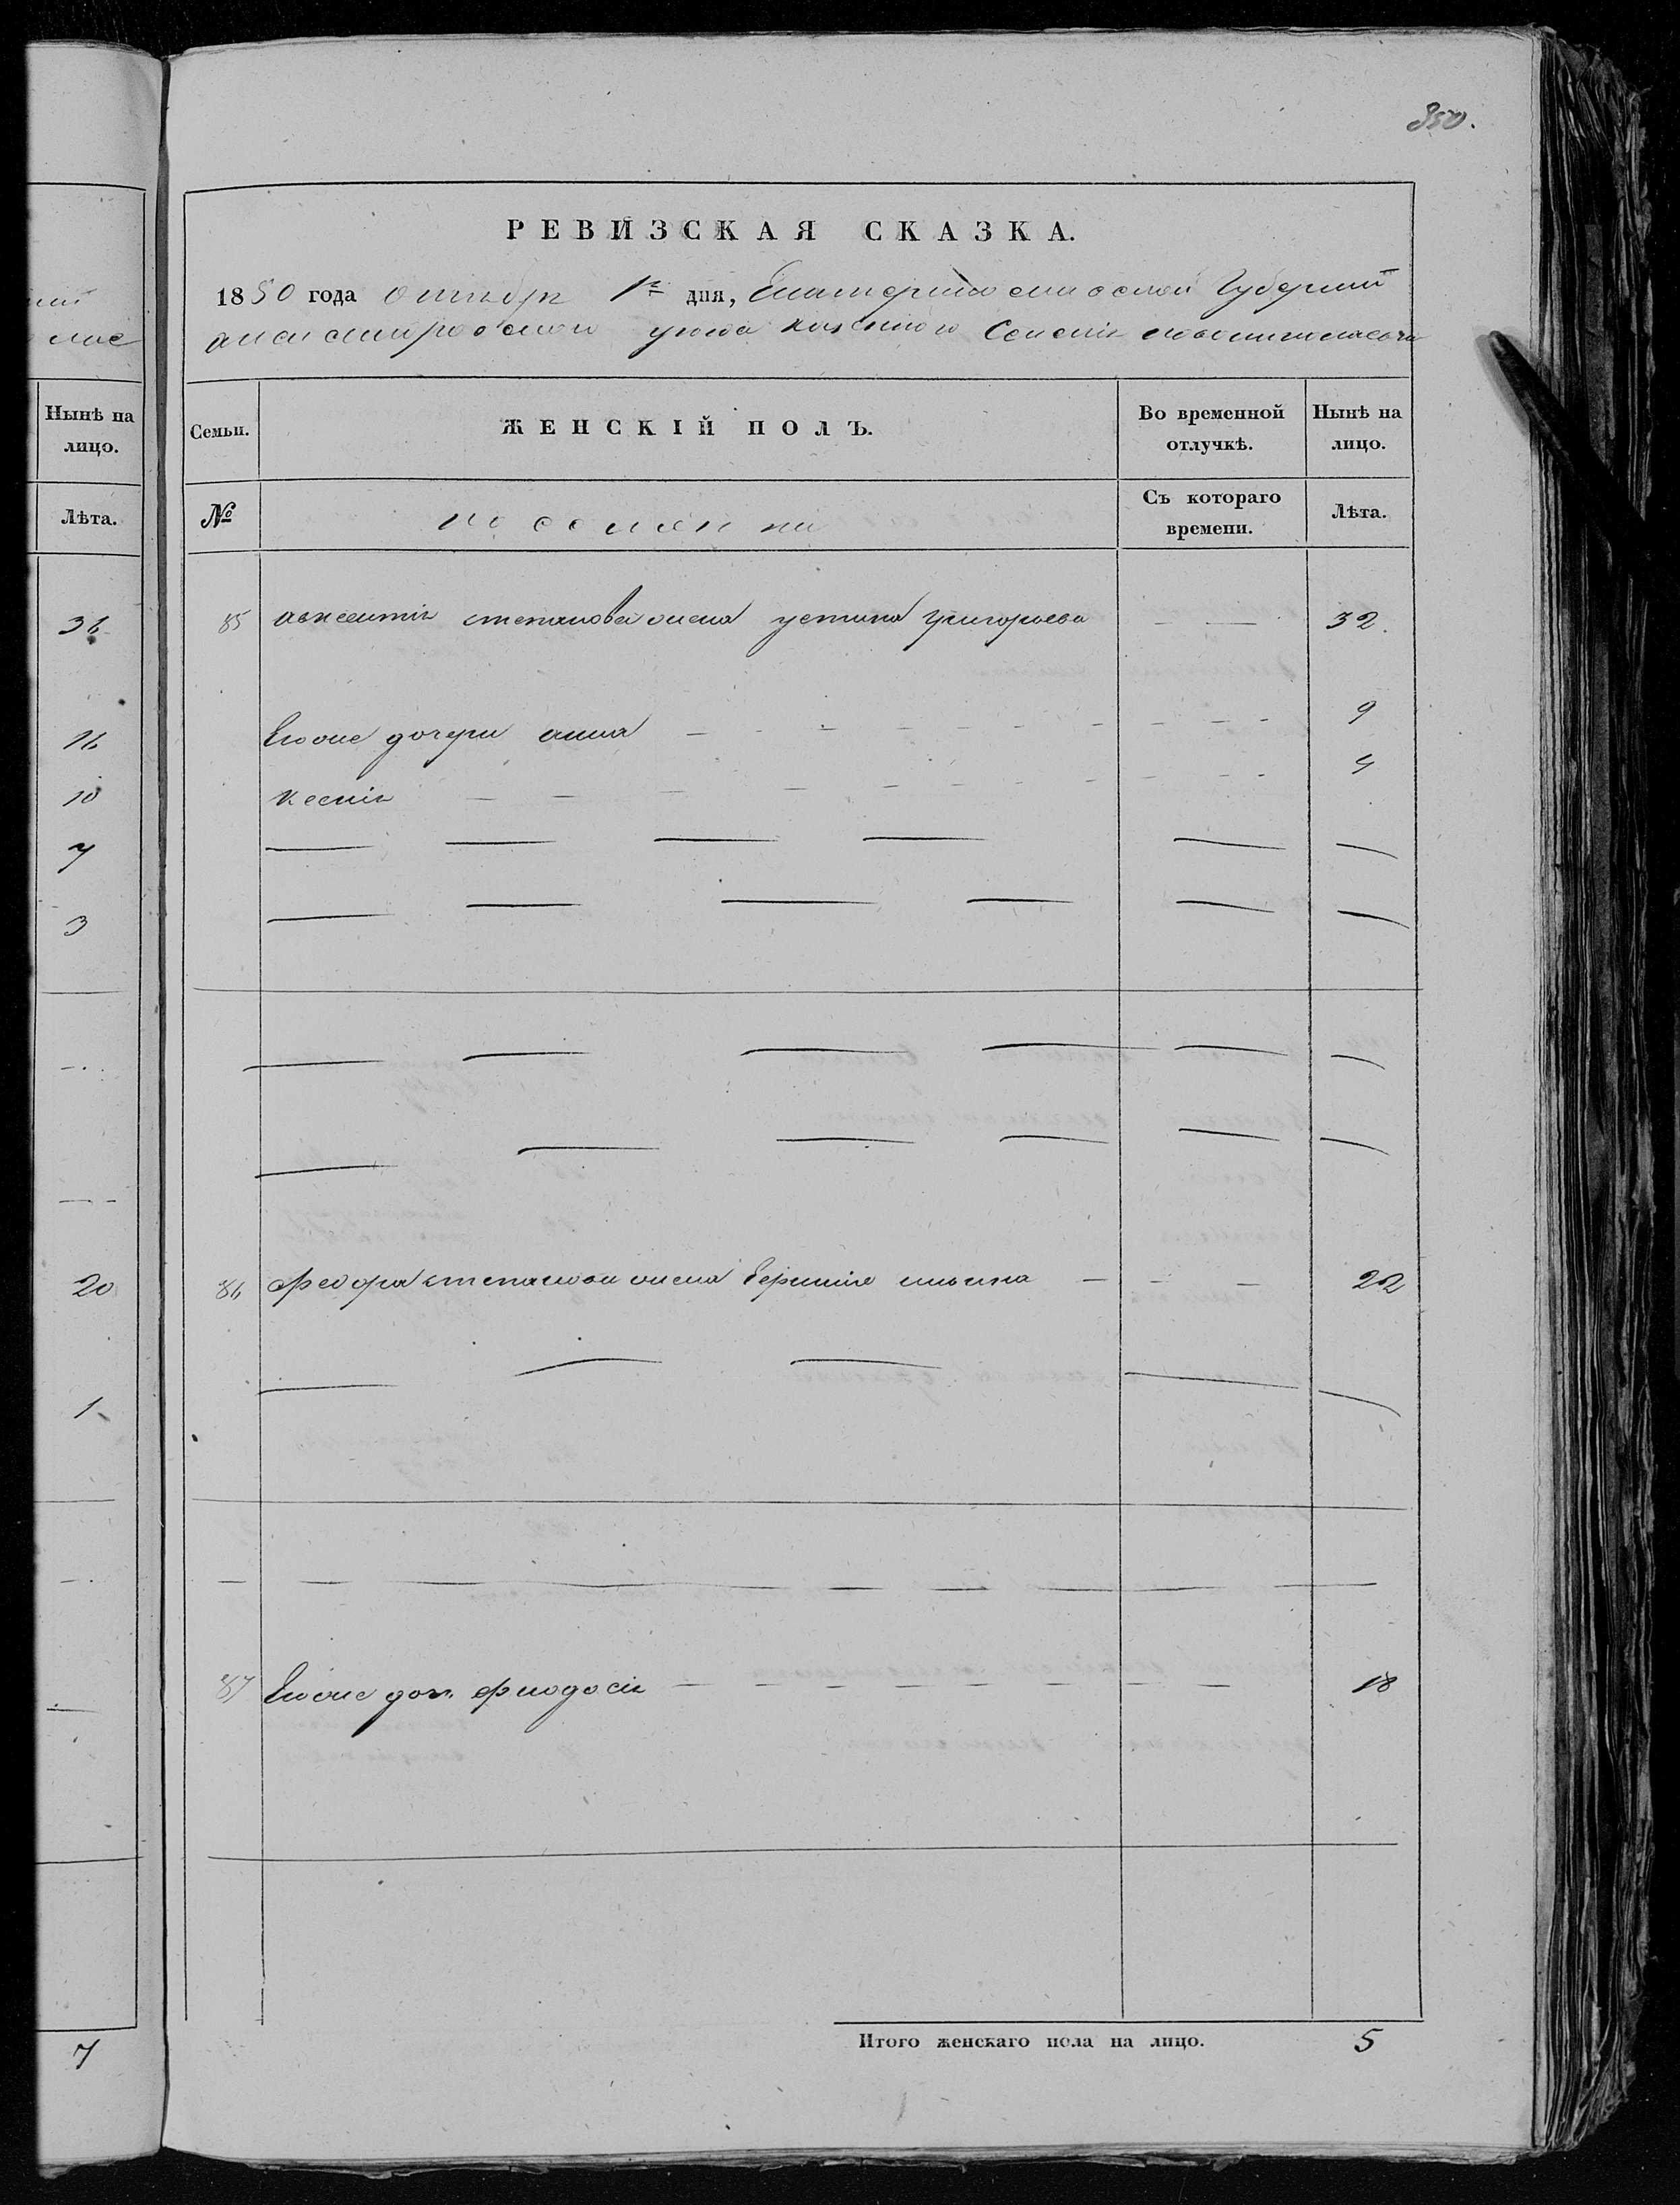 350.
РЕВИЗСКАЯ СКАЗКА.
1850 года октября 1го дня, Екатеринославской Губернии
александровского уезда казенного Селения
Нынѣ на лицо.
Лѣта.
36
16
10
7
3
20
1
7
Семьи.
ЖЕНСКІЙ ПОЛЪ.
Во временной отлучкѣ.
Нынѣ на лицо.
№
Съ котораго времени.
Лѣта.
85 авксентия степанова жена устина григорьева 32.
Егоже дочери анна 9
ксения 4
86 Федора степанова жена 22
87 Егоже доч. 18
Итого женскаго пола на лицо. 5